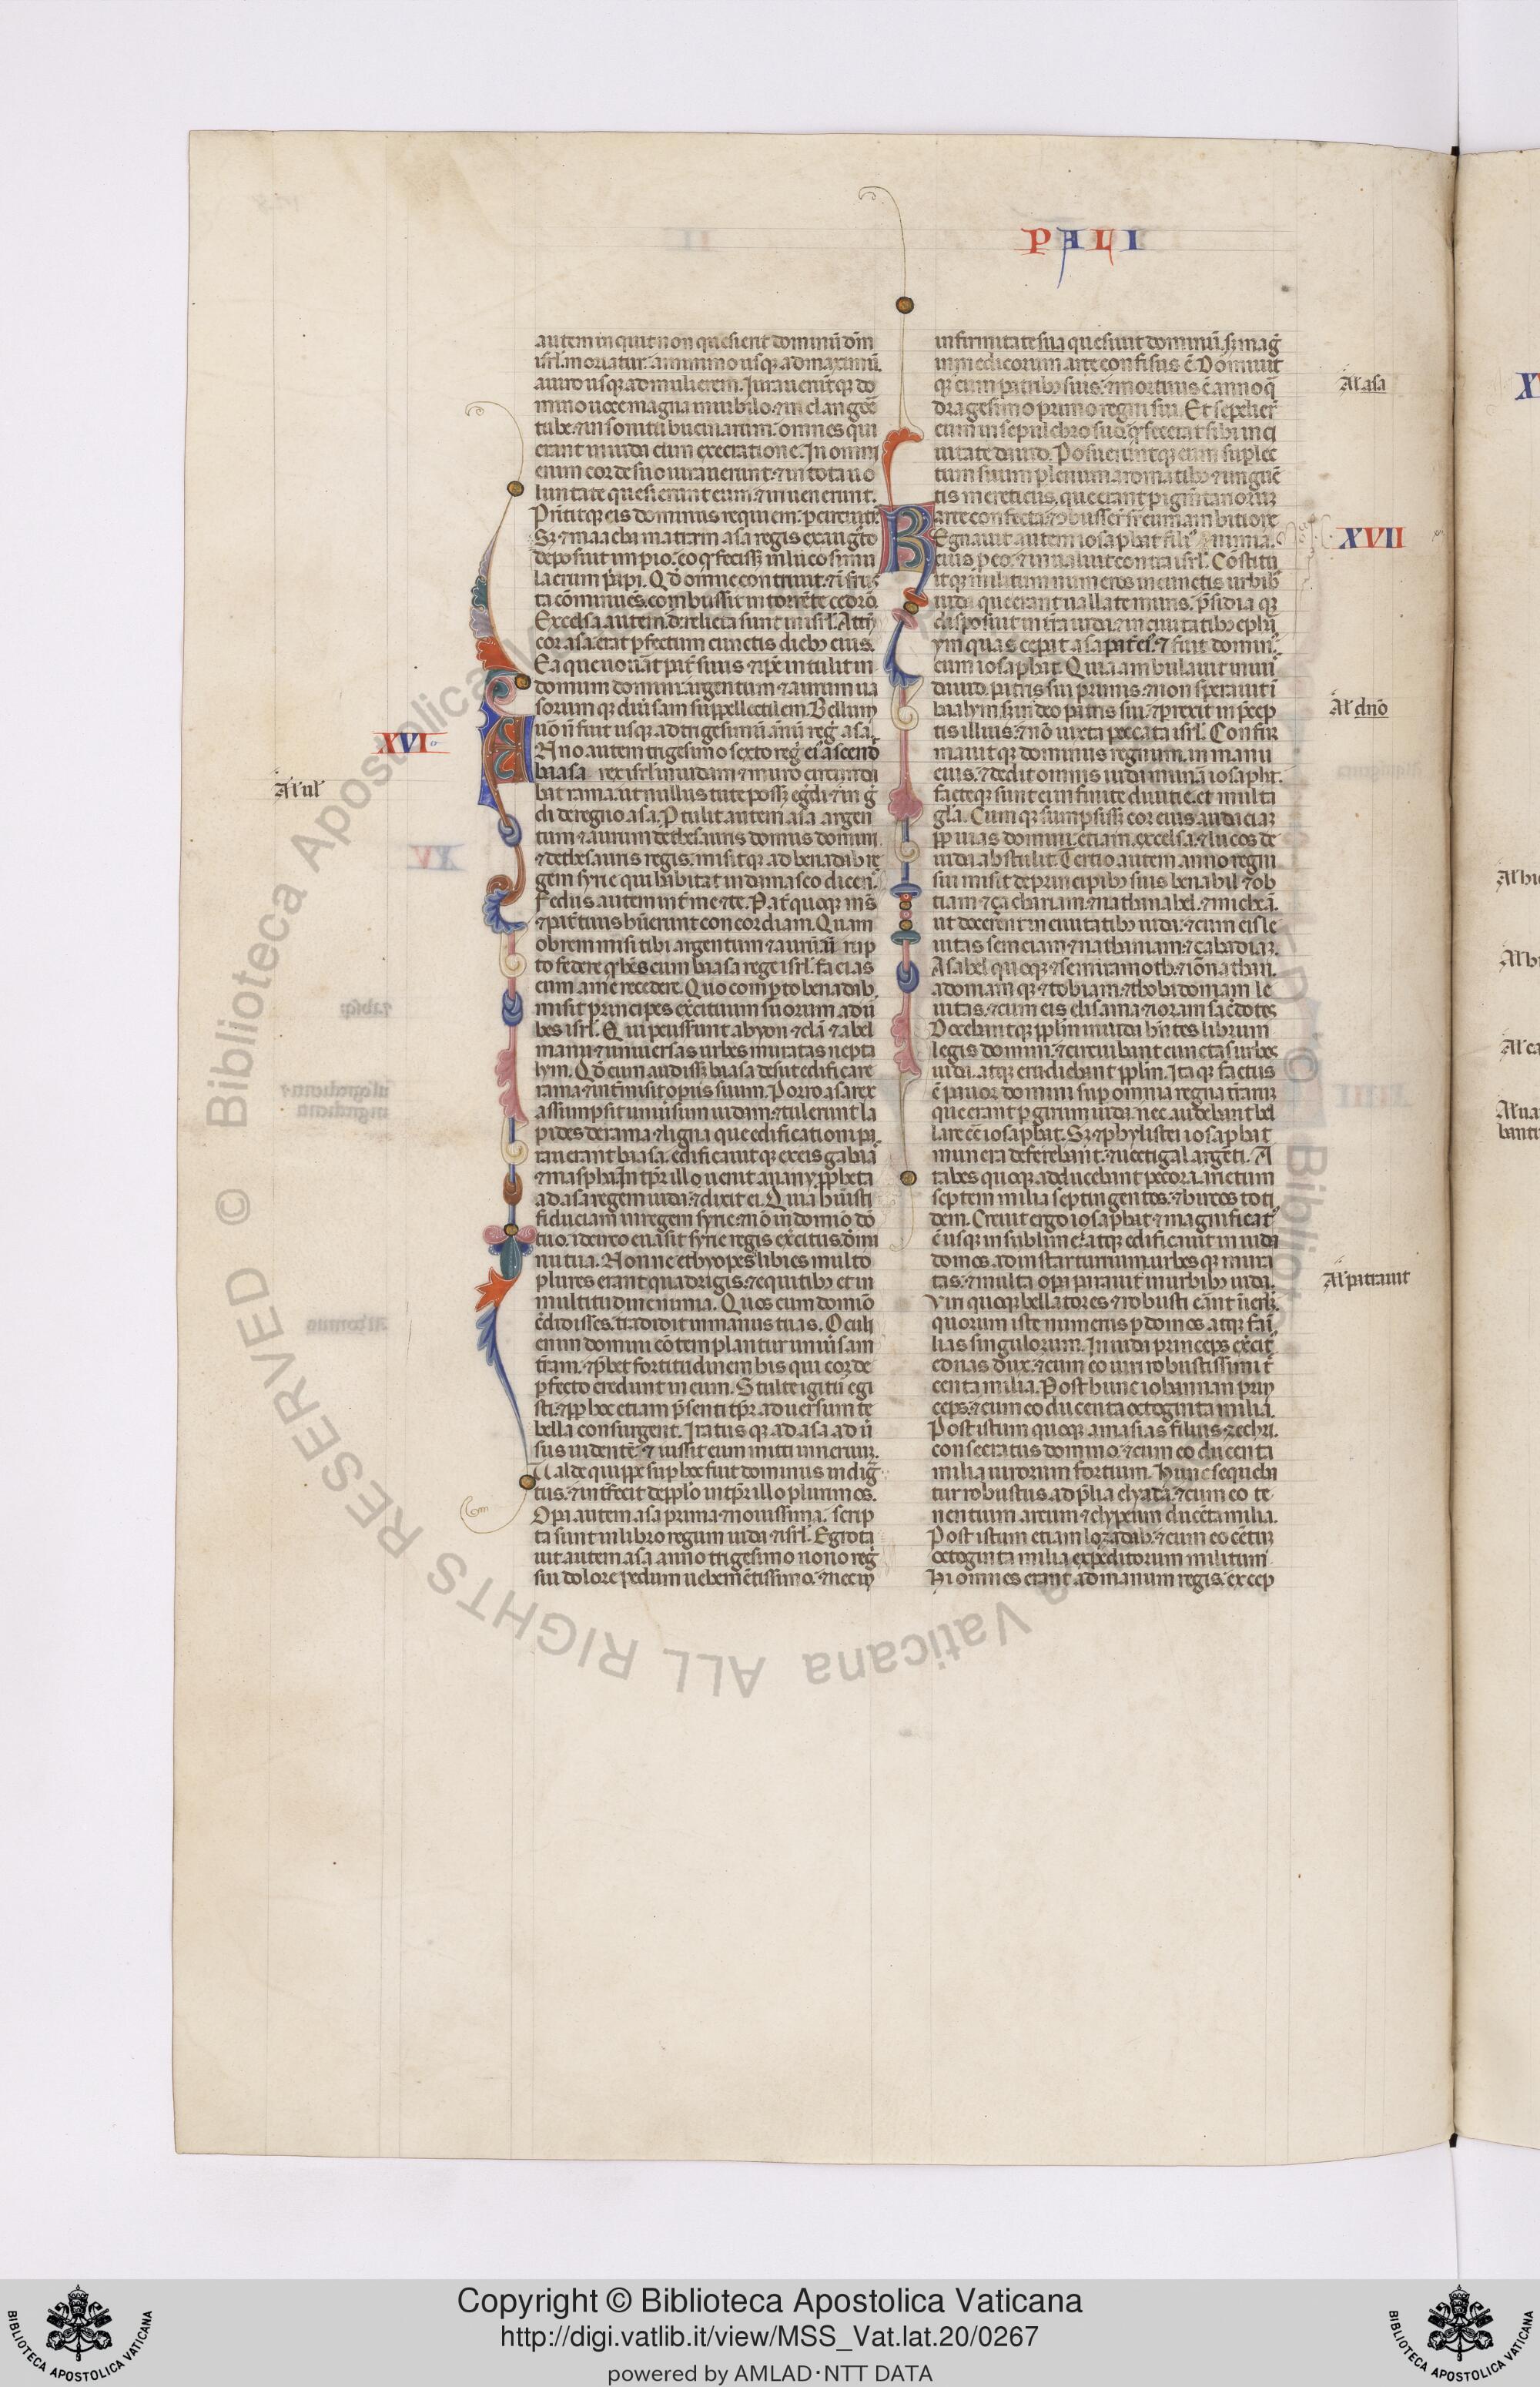 PALI
autem inquit non quesierit dominū dm̄
isrl̄. moriatur. a minimo usq; ad maximū.
a uiro usq; ad mulierem. Iurauerūtq; do
mino uoce magna in iubilo. ⁊ in clangore
tube. ⁊ in sonitu bucinarum. omnes qui
erant in iuda cum execratione. In omni
enim corde suo iurauerunt. ⁊ in tota uo
luntate quesierunt eum. ⁊ inuenerunt.
deposuit imꝑio. eo ꝙ fecissꝫ in luco simu
lacrum priapi. Qd̄ omne contriuit.
ta cōminuēs. combussit in torrēte cedrō.
Excelsa autem. derelicta sunt in isrl̄.
cor asa. erat ꝑfectum cunctis dieb; eius.
domum domini. argentum ⁊ aurum. ua
sorum q; diūsam suppellectilem. Bellum
uō n̄ fuit usq; ad trigesimū
XVI
Anno autem trigesimo sexto
baasa rex isrl̄ in iudam ⁊ muro circūda
Al' ul'
bat rama. ut nullus tute possꝫ egˢdi ⁊ ingˢ
di de regno asa. Ꝓtulit autem asa argen
tum ⁊ aurum de thesauris domus domini
⁊ de thesauris regis. misitq; ad benadab re
gem syrie qui habitat in damasco dicens.
Fedus autem int̄ me ⁊ te.
⁊ pat̄ tuus hūerunt concordiam. Quam
obrem misi tibi argentum ⁊ aurū. ū rup
to federe qᵈ hēs cum baasa rege isrl̄. facias
eum a me recedere. Quo comꝑto benadab.
misit principes exercituum suorum ad ur
bes isrl̄. Qui ꝑcusserunt ahyon ⁊ dan ⁊ abel
maim ⁊ uniuersas urbes muratas nepta
lym. Qd̄ cum audissꝫ baasa. desiit edificare
rama. ⁊ int̄misit opus suum. Porro asa rex
assumpsit uniūsum iudam. ⁊ tulerunt la
pides de rama. ⁊ ligna que edificationi ꝑa
rauerant baasa. edificauitq; ex eis gabaa
⁊ maspha. In tꝑr illo uenit anany ꝓpheta
ad asa regem iuda. ⁊ dixit ei. Quia hūisti
fiduciam in rege syrie. ⁊ nō in domino dō
tuo. idcirco euasit syrie regis exercitus de ma
nu tua. Nonne ethyopes ⁊ libies multo
plures erant quadrigis. ⁊ equitib; et in
multitudine nimia. Quos cum domino
credidisses. tradidit in manus tuas. Oculi
enim domini contemplantur uniūsam
tr̄am. ⁊ p̄bet fortitudinem his qui corde
ꝑfecto credunt in eum. Stulte igitur egi
sti. ⁊ ꝓpt̄ hoc etiam p̄senti tꝑr. aduersum te
bella consurgent. Iratus q; asa adū
sus uidentē. ⁊ iussit eum mitti in neruum.
Valde quippe sup̄ hoc fuit dominus indigna
tus. ⁊ int̄fecit de pp̄lo in tꝑr illo plurimos.
Opa autem asa prima ⁊ nouissima. scrip
ta sunt in libro regum iuda ⁊ isrl̄. Egrota
uit autem asa anno trigesimo nono regni
sui dolore pedum uehemētissimo. ⁊ nec in
infirmitate sua quesiuit dominū. sꝫ mag̊
in medicorum arte confisus ē. Dormiuit
Al' asa
q; cum patrib; suis. ⁊ mortuus ē anno q̄
dragesimo primo regni sui. Et sepelier̄
eum in sepulchro suo qᵈ fecerat sibi in ci
uitate dauid. Posueruntq; eum suꝑ lec
tum suum plenum aromatib; ⁊ unguē
tis meretriciis. que erant pigmentariorum
arte confecta. ⁊ combusser̄ sup̄ eum ambitiōe
XVII
Regnauit autem iosaphat fili'
eius ꝓ eo. ⁊ inualuit contra isrl̄. Constitu
itq; militum numeros in cunctis urbib;
iuda que erant uallate muris. p̄sidia q;
disposuit in tr̄a iuda. ⁊ in ciuitatib; ephra
ym quas cepat asa pat̄ ei'. ⁊ fuit domin'
cum iosaphat. Quia ambulauit in uiis
dauid. patris sui primis. ⁊ non sperauit ī
Al' dnō
baalym. sꝫ in deo patris sui. ⁊ ꝑrexit in p̄cep
tis illius. ⁊ nō iuxta peccata isrl̄. Confir
mauitq; dominus regnum. in manu
eius. ⁊ dedit omnis iuda munā iosaphat.
facteq; sunt ei infinite diuitie. et multa
glā. Cumq; sumpsissꝫ cor eius audaciam
ꝓpt̄ uias domini. etiam. excelsa. ⁊ lucos de
iuda abstulit. Tertio autem anno regni
sui misit de principib; suis benahil. ⁊ ob
diam. ⁊ çachariam. ⁊ nathanabel. ⁊ micheā.
ut docerent in ciuitatib; iuda. ⁊ cum eis le
uitas semeiam. ⁊ nathaniam. ⁊ çabadiam.
Asahel quoq; ⁊ semiramoth. ⁊ ionathan.
adoniam q; ⁊ tobiam. ⁊ thobadoniam le
uitas. ⁊ cum eis elisama. ⁊ ioram sac̄dotes
Docebantq; pp̄lm in iuda hn̄tes librum
legis domini. ⁊ circuibant cunctas urbes
iuda. atq; erudiebant pp̄lm. Itaq; factus
ē pauor domini suꝑ omnia regna terrarum
que erant ꝑ girum iuda. nec audebant bel
lare cōt iosaphat. Sꝫ ⁊ phylistei iosaphat
munera deferebant. ⁊ uectigal argēti. A
rabes quoq; adducebant pecora. arietum
septem milia septingentos. ⁊ hircos toti
dem. Creuit ergo iosaphat. ⁊ magnificat'
ē usq; in sublime. atq; edificauit in iuda
domos ad instar turrium. urbes q; mura
Al' patrauit
tas. ⁊ multa opa ꝑarauit in urbib; iuda.
Viri quoq; bellatores ⁊ robusti erant in ierlm.
quorum iste numerus ꝑ domos atq; fami
lias singulorum. In iuda principes exercit'
ednas dux. ⁊ cum eo uiri robustissimi tˢ
centa milia. Post hunc iohannan prin
ceps. ⁊ cum eo ducenta octoginta milia.
Post istum quoq; amasias filius zechri.
consecratus domino. ⁊ cum eo ducenta
milia uirorum fortium. Hunc sequeba
tur robustus ad p̄lia elyada. ⁊ cum eo te
nentium arcum ⁊ clypeum ducēta milia.
Post istum etiam iozadab. ⁊ cum eo cētum
octoginta milia expeditorum militum
Hi omnes erant ad manum regis. excep
Biblioteca Apostolica Vaticana ALL RIGHTS RESERVED ©
Copyright © Biblioteca Apostolica Vaticana
http://digi.vatlib.it/view/MSS_Vat.lat.20/0267
powered by AMLAD·NTT DATA
BIBLIOTECA APOSTOLICA VATICANA
BIBLIOTECA APOSTOLICA VATICANA